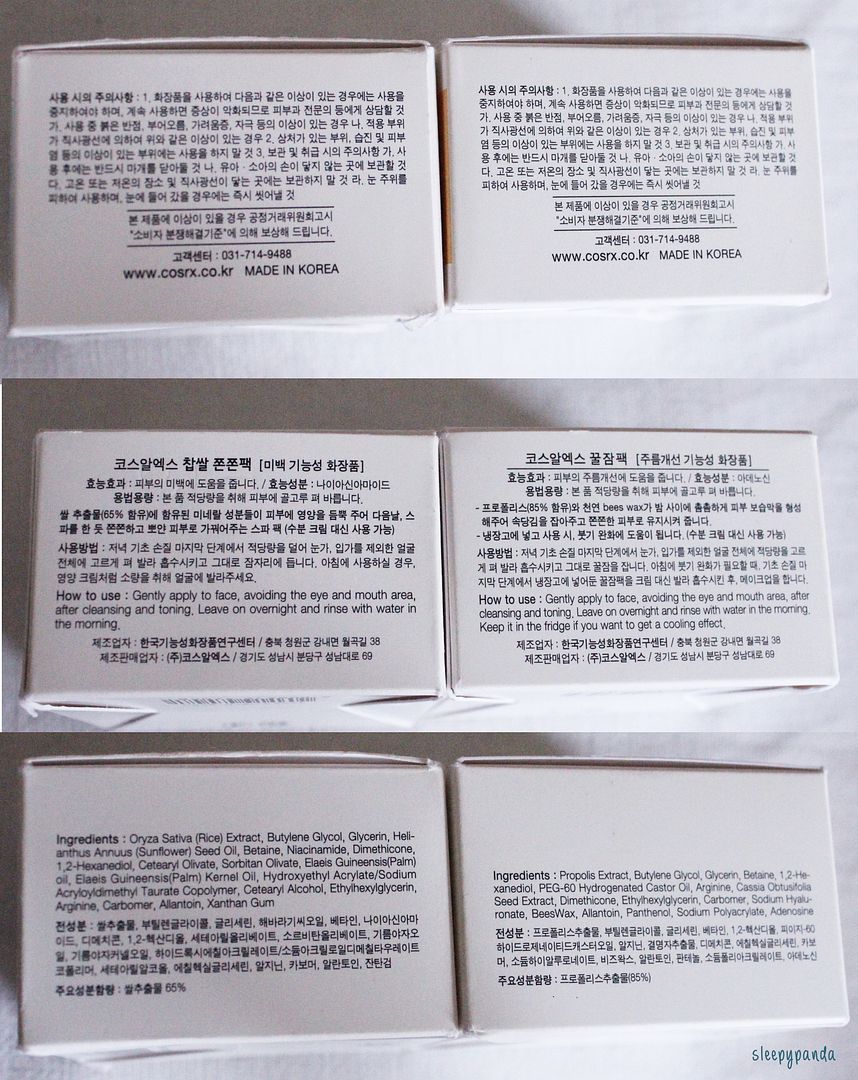 사용 시의 주의사항 : 1. 화장품을 사용하여 다음과 같은 이상이 있는 경우에는 사용을
중지하여야 하며, 계속 사용하면 증상이 악화되므로 피부과 전문의 등에게 상담할 것
가. 사용 중 붉은 반점, 부어오름, 가려움증, 자극 등의 이상이 있는 경우 나. 적용 부위
가 직사광선에 의하여 위와 같은 이상이 있는 경우 2. 상처가 있는 부위, 습진 및 피부
염 등의 이상이 있는 부위에는 사용을 하지 말 것 3. 보관 및 취급 시의 주의사항 가. 사
용 후에는 반드시 마개를 닫아둘 것 나. 유아 · 소아의 손이 닿지 않는 곳에 보관할 것
다. 고온 또는 저온의 장소 및 직사광선이 닿는 곳에는 보관하지 말 것 라. 눈 주위를
피하여 사용하며, 눈에 들어 갔을 경우에는 즉시 씻어낼 것
본 제품에 이상이 있을 경우 공정거래위원회고시
"소비자 분쟁해결기준"에 의해 보상해 드립니다.
고객센터 : 031-714-9488
www.cosrx.co.kr MADE IN KOREA
사용 시의 주의사항 : 1. 화장품을 사용하여 다음과 같은 이상이 있는 경우에는 사용을
중지하여야 하며, 계속 사용하면 증상이 악화되므로 피부과 전문의 등에게 상담할 것
가. 사용 중 붉은 반점, 부어오름, 가려움증, 자극 등의 이상이 있는 경우 나. 적용 부위
가 직사광선에 의하여 위와 같은 이상이 있는 경우 2. 상처가 있는 부위, 습진 및 피부
염 등의 이상이 있는 부위에는 사용을 하지 말 것 3. 보관 및 취급 시의 주의사항 가. 사
용 후에는 반드시 마개를 닫아둘 것 나. 유아 · 소아의 손이 닿지 않는 곳에 보관할 것
다. 고온 또는 저온의 장소 및 직사광선이 닿는 곳에는 보관하지 말 것 라. 눈 주위를
피하여 사용하며, 눈에 들어 갔을 경우에는 즉시 씻어낼 것
본 제품에 이상이 있을 경우 공정거래위원회고시
"소비자 분쟁해결기준"에 의해 보상해 드립니다.
고객센터 : 031-714-9488
www.cosrx.co.kr MADE IN KOREA
코스알엑스 찹쌀 쫀쫀팩 [미백 기능성 화장품]
효능효과 : 피부의 미백에 도움을 줍니다. / 효능성분 : 나이아신아마이드
용법용량 : 본 품 적당량을 취해 피부에 골고루 펴 바릅니다.
쌀 추출물(65% 함유)에 함유된 미네랄 성분들이 피부에 영양을 듬뿍 주어 다음날, 스
파를 한 듯 쫀쫀하고 뽀얀 피부로 가꿔어주는 스파 팩 (수분 크림 대신 사용 가능)
사용방법 : 저녁 기초 손질 마지막 단계에서 적당량을 덜어 눈가, 입가를 제외한 얼굴
전체에 고르게 펴 발라 흡수시키고 그대로 잠자리에 듭니다. 아침에 사용하실 경우,
영양 크림처럼 소량을 취해 얼굴에 발라주세요.
How to use : Gently apply to face, avoiding the eye and mouth area,
after cleansing and toning. Leave on overnight and rinse with water in
the morning.
제조업자 : 한국기능성화장품연구센터 / 충북 청원군 강내면 월곡길 38
제조판매업자 : (주)코스알엑스 / 경기도 성남시 분당구 성남대로 69
코스알엑스 꿀잠팩 [주름개선 기능성 화장품]
효능효과 : 피부의 주름개선에 도움을 줍니다. / 효능성분 : 아데노신
용법용량 : 본 품 적당량을 취해 피부에 골고루 펴 바릅니다.
- 프로폴리스(85% 함유)와 천연 bees wax가 밤 사이에 촘촘하게 피부 보습막을 형성
해주어 속당김을 잡아주고 쫀쫀한 피부로 유지시켜 줍니다.
- 냉장고에 넣고 사용 시, 붓기 완화에 도움이 됩니다. (수분 크림 대신 사용 가능)
사용방법 : 저녁 기초 손질 마지막 단계에서 눈가, 입가를 제외한 얼굴 전체에 적당량을 고르
게 펴 발라 흡수시키고 그대로 꿀잠을 잡니다. 아침에 붓기 완화가 필요할 때, 기초 손질 마
지막 단계에서 냉장고에 넣어둔 꿀잠팩을 크림 대신 발라 흡수시킨 후, 메이크업을 합니다.
How to use : Gently apply to face, avoiding the eye and mouth area,
after cleansing and toning. Leave on overnight and rinse with water in the morning.
Keep it in the fridge if you want to get a cooling effect.
제조업자 : 한국기능성화장품연구센터 / 충북 청원군 강내면 월곡길 38
제조판매업자 : (주)코스알엑스 / 경기도 성남시 분당구 성남대로 69
Ingredients : Oryza Sativa (Rice) Extract, Butylene Glycol, Glycerin, Heli-
anthus Annuus (Sunflower) Seed Oil, Betaine, Niacinamide, Dimethicone,
1,2-Hexanediol, Cetearyl Olivate, Sorbitan Olivate, Elaeis Guineensis(Palm)
oil, Elaeis Guineensis(Palm) Kernel Oil, Hydroxyethyl Acrylate/Sodium
Acryloyldimethyl Taurate Copolymer, Cetearyl Alcohol, Ethylhexylglycerin,
Arginine, Carbomer, Allantoin, Xanthan Gum
전성분 : 쌀추출물, 부틸렌글라이콜, 글리세린, 해바라기씨오일, 베타인, 나이아신아마
이드, 디메치콘, 1,2-헥산디올, 세테아릴올리베이트, 소르비탄올리베이트, 기름야자오
일, 기름야자커넬오일, 하이드록시에칠아크릴레이트/소듐아크릴로일디메칠타우레이트
코폴리머, 세테아릴알코올, 에칠헥실글리세린, 알지닌, 카보머, 알란토인, 잔탄검
주요성분함량 : 쌀추출물 65%
Ingredients : Propolis Extract, Butylene Glycol, Glycerin, Betaine, 1,2-He-
xanediol, PEG-60 Hydrogenated Castor Oil, Arginine, Cassia Obtusifolia
Seed Extract, Dimethicone, Ethylhexylglycerin, Carbomer, Sodium Hyalu-
ronate, BeesWax, Allantoin, Panthenol, Sodium Polyacrylate, Adenosine
전성분 : 프로폴리스추출물, 부틸렌글라이콜, 글리세린, 베타인, 1,2-헥산디올, 피이지-60
하이드로제네이티드캐스터오일, 알지닌, 결명자추출물, 디메치콘, 에칠헥실글리세린, 카보
머, 소듐하이알루로네이트, 비즈왁스, 알란토인, 판테놀, 소듐폴리아크릴레이트, 아데노신
주요성분함량 : 프로폴리스추출물(85%)
sleepypanda